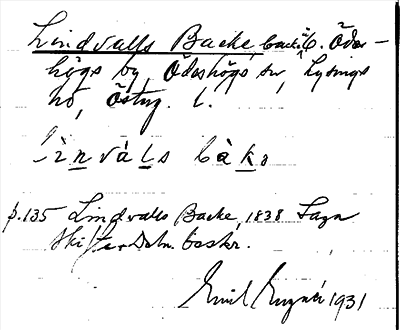 Lindvalls Backe, backe i Ödes-
högs by, Ödeshögs sn, Lysings
hd, Östg. l.
lìnvàls bàkə
p.135 Lindvalls Backe, 1838 Laga
skifte, Dnr. beskr.
Emil 1931